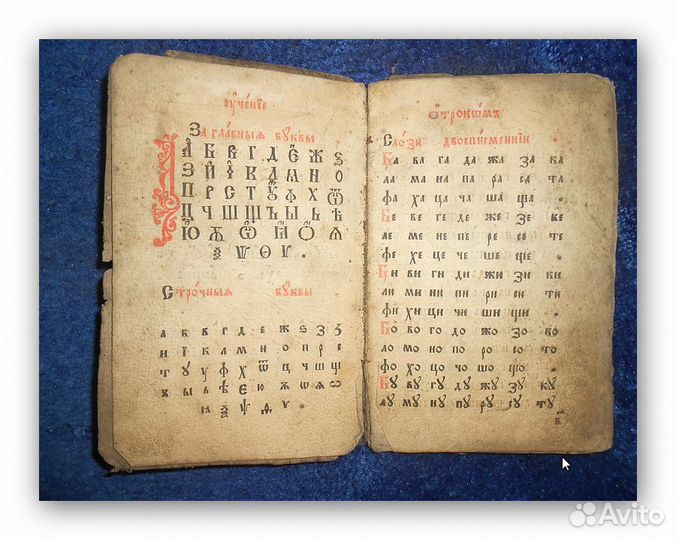 оучéнїе
Заглáвныя бýквы
А Б В Г Д Е Ж Ѕ
З И І К Л М Н О
П Р С Т Ꙋ Ф Х Ѿ
Ц Ч Ш Щ Ъ Ы Ь Ѣ
Ю Ѫ Ѽ Ꙗ Ѻ Ѧ
Ѯ Ѱ Ѳ Ѵ .
Стрóчныя бýквы
а б в г д е ж ѕ з
н і к л м н о п р с
т у ф х ѿ ц ч ш щ
ъ ы ь ѣ ю
ꙗ ѯ ѱ ѵ .
ѻтрокѡмъ
Слóзи двоепи́сменнїи
Ба ва га да жа за ка
ла ма на па ра са та
фа ха ца ча ша ща .
Бе ве ге де же зе ке
ле ме не пе ре се те
фе хе це че ше ще .
Би ви ги ди жи зи ки
ли ми ни пи ри си ти
фи хи ци чи ши щи .
Бо во го до жо зо ко
ло мо но по ро со то
фо хо цо чо шо що .
Бу ву гу ду жу зу ку
лу му ну пу ру су ту
Avito